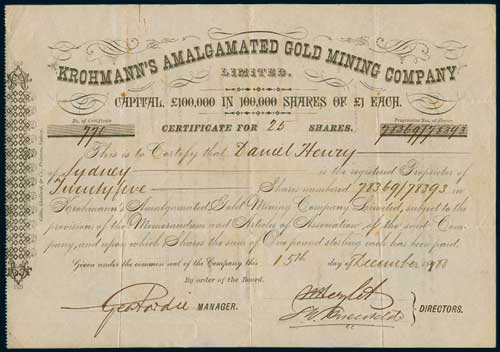 KROHMANN'S AMALGAMATED GOLD MINING COMPANY
LIMITED.
CAPITAL, £100,000 IN 100,000 SHARES OF £1 EACH.
No. of Certificate
Progressive Nos. of Shares
771
CERTIFICATE FOR 25 SHARES.
78369/78393
This is to Certify that Daniel Henry
of Sydney is the registered Proprietor of
Twenty five Shares numbered 78369/78393 in
Krohmann's Amalgamated Gold Mining Company Limited, subject to the
provision of the Memorandum and Articles of Association of the said Com-
pany, and upon which Shares the sum of One pound sterling each has been paid.
Given under the common seal of the Company this 15th day of December 18
By order of the Board.
MANAGER.
DIRECTORS.